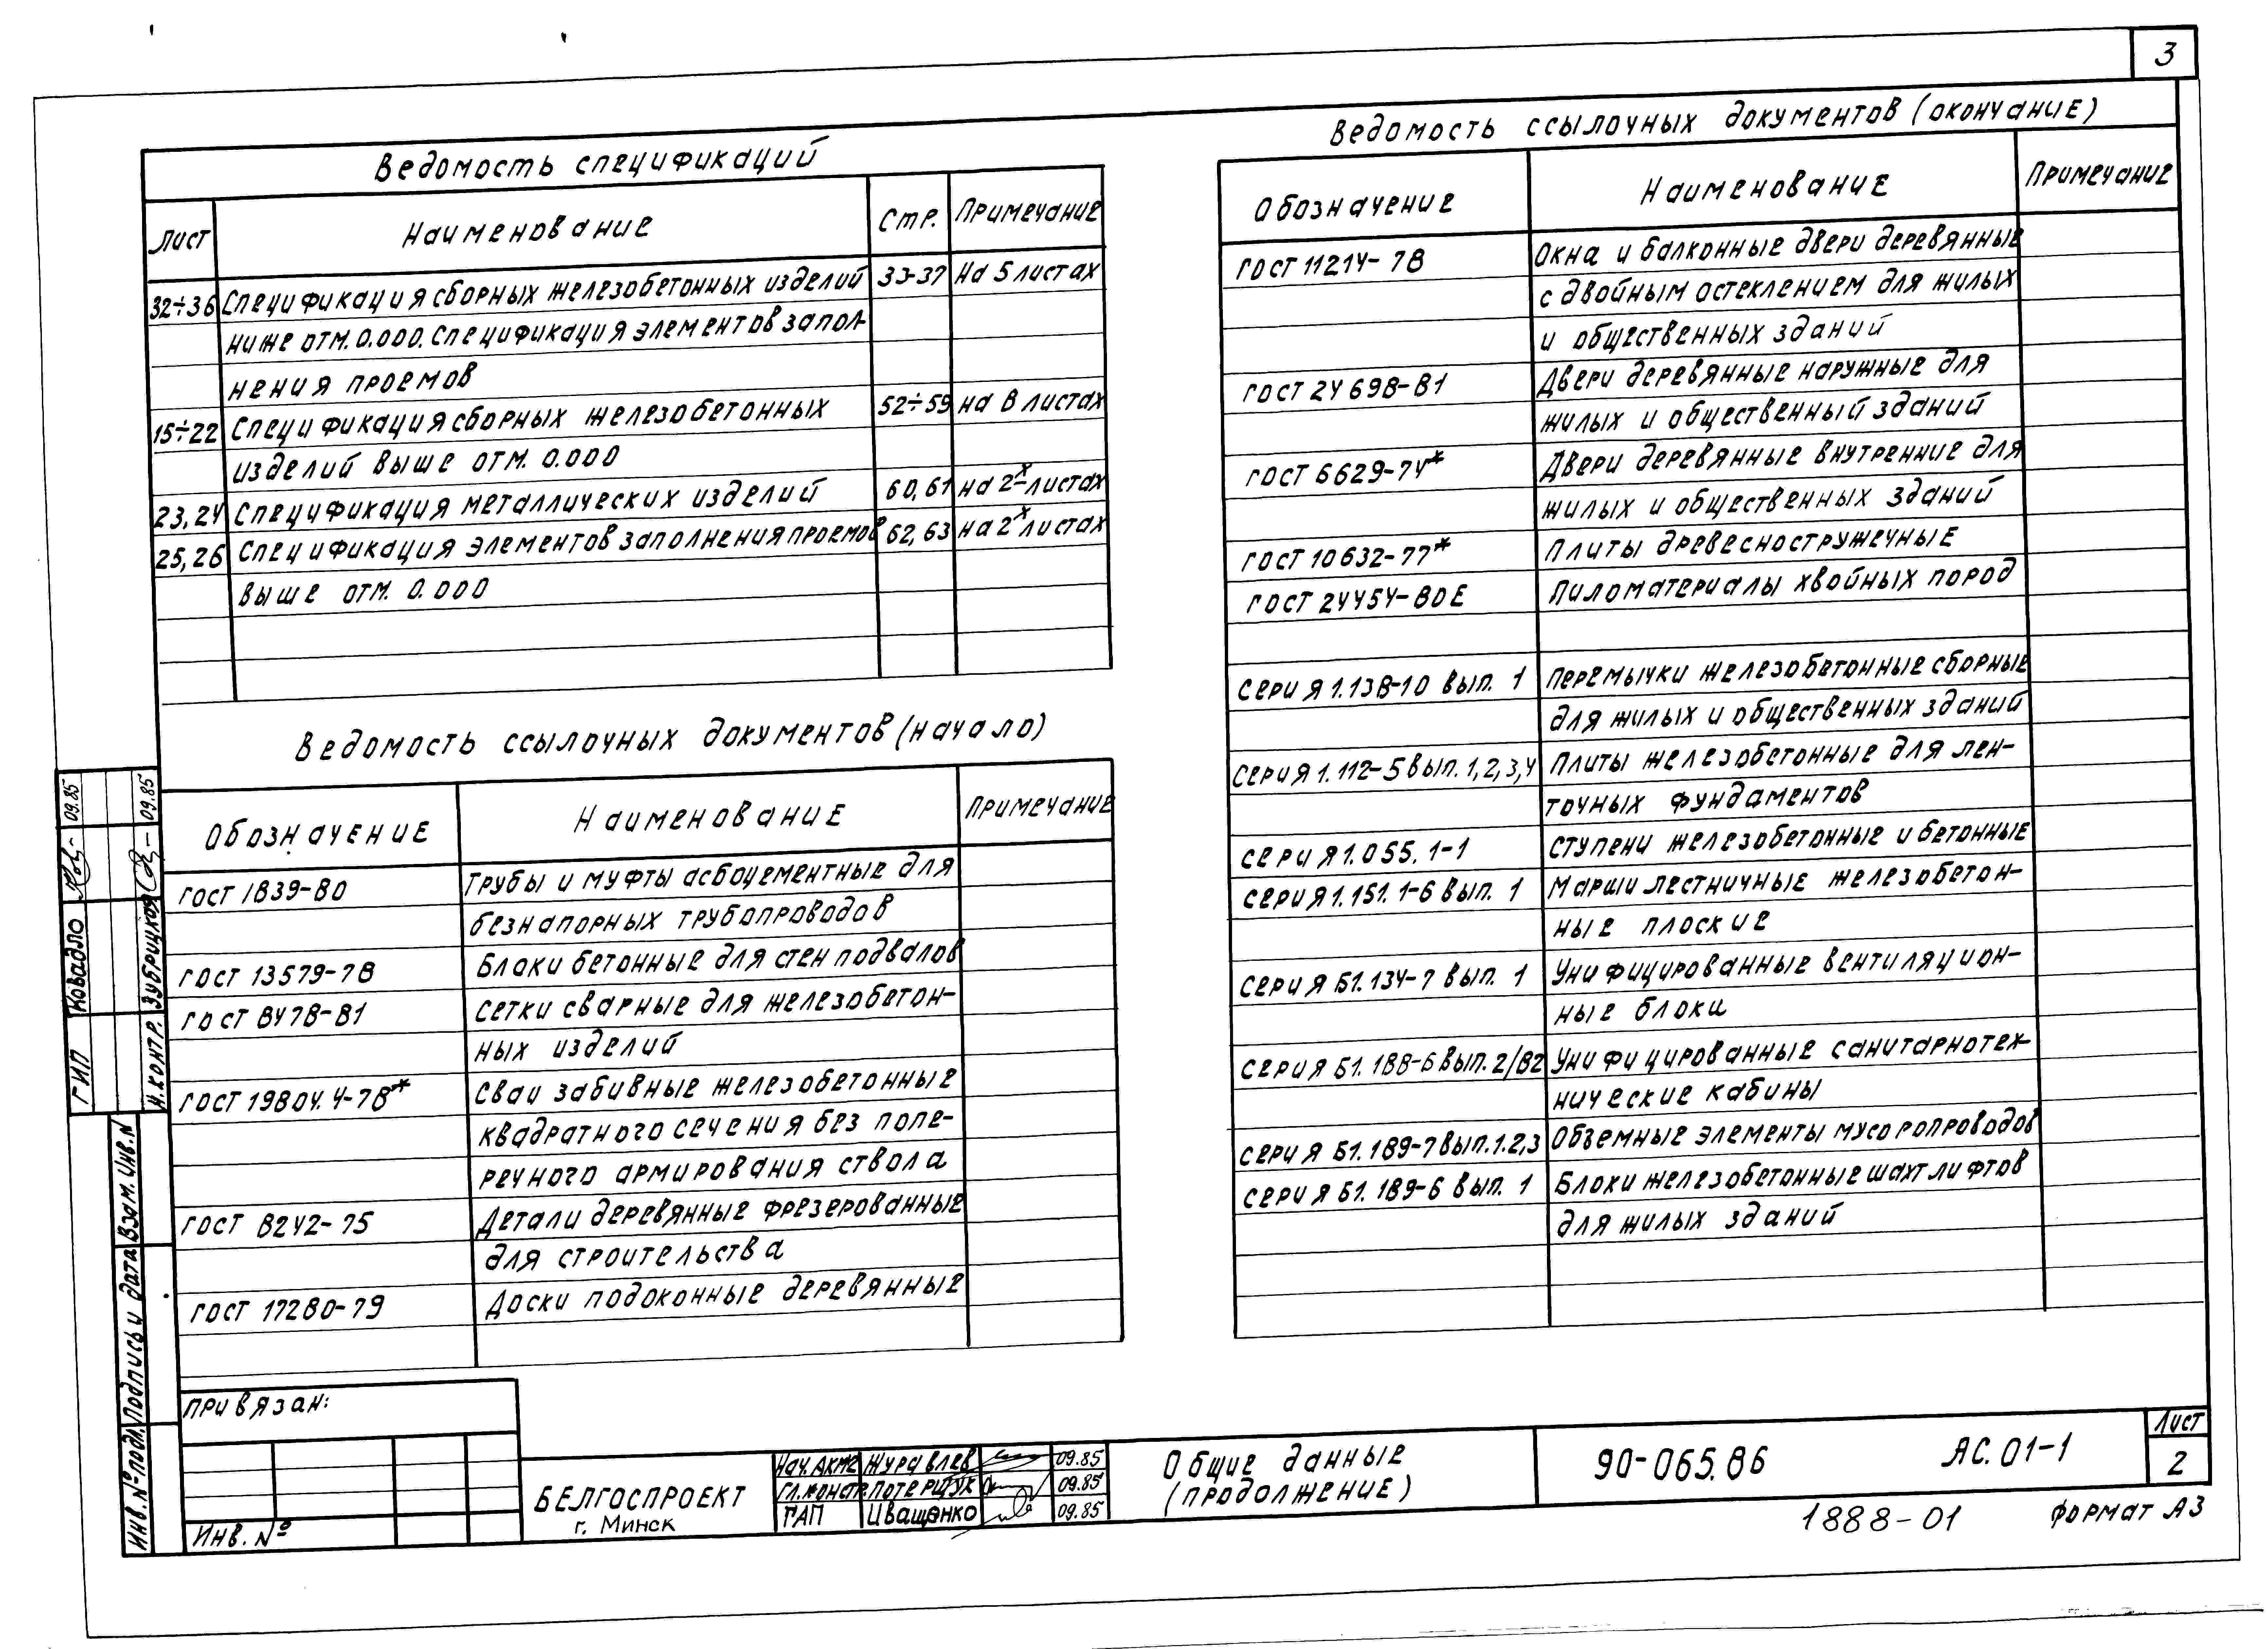 3
Ведомость спецификаций
Лист Наименование Стр. Примечание
32÷36 Спецификация сборных железобетонных изделий 33-37 На 5 листах
ниже отм. 0.000. Спецификация элементов запол-
нения проемов
15÷22 Спецификация сборных железобетонных 52÷59 на 8 листах
изделий выше отм. 0.000
23,24 Спецификация металлических изделий 60,61 на 2х листах
25,26 Спецификация элементов заполнения проемов 62,63 на 2х листах
выше отм. 0.000
Ведомость ссылочных документов (начало)
Обозначение Наименование Примечание
ГОСТ 1839-80 Трубы и муфты асбоцементные для
безнапорных трубопроводов
ГОСТ 13579-78 Блоки бетонные для стен подвалов
ГОСТ 8478-81 Сетки сварные для железобетон-
ных изделий
ГОСТ 19804.4-78* Сваи забивные железобетонные
квадратного сечения без попе-
речного армирования ствола
ГОСТ 8242-75 Детали деревянные фрезерованные
для строительства
ГОСТ 17280-79 Доски подоконные деревянные
Ведомость ссылочных документов (окончание)
Обозначение Наименование Примечание
ГОСТ 11214-78 Окна и балконные двери деревянные
с двойным остеклением для жилых
и общественных зданий
ГОСТ 24698-81 Двери деревянные наружные для
жилых и общественный зданий
ГОСТ 6629-74* Двери деревянные внутренние для
жилых и общественных зданий
ГОСТ 10632-77* Плиты древесностружечные
ГОСТ 24454-80Е Пиломатериалы хвойных пород
Серия 1.138-10 вып. 1 Перемычки железобетонные сборные
для жилых и общественных зданий
Серия 1.112-5 вып. 1,2,3,4 Плиты железобетонные для лен-
точных фундаментов
Серия 1.055.1-1 Ступени железобетонные и бетонные
Серия 1.151.1-6 вып. 1 Марши лестничные железобетон-
ные плоские
Серия Б1.134-7 вып. 1 Унифицированные вентиляцион-
ные блоки
Серия Б1.188-6 вып. 2/82 Унифицированные санитарнотех-
нические кабины
Серия Б1.189-7 вып. 1.2,3 Объемные элементы мусоропроводов
Серия Б1.189-6 вып. 1 Блоки железобетонные шахт лифтов
для жилых зданий
ГИП Ковадло 09.85
Н.контр. Зубрицкая 09.85
Взам. Инв. N
Подпись и дата
Инв. № подл.
Привязан:
Инв. №
БЕЛГОСПРОЕКТ
г. Минск
Нач. АКМ2 Журавлев 09.85
Гл.констр. Потерщук 09.85
ГАП Иващенко 09.85
Общие данные
(продолжение)
90-065.86 АС.01-1
Лист
2
1888-01 Формат А3